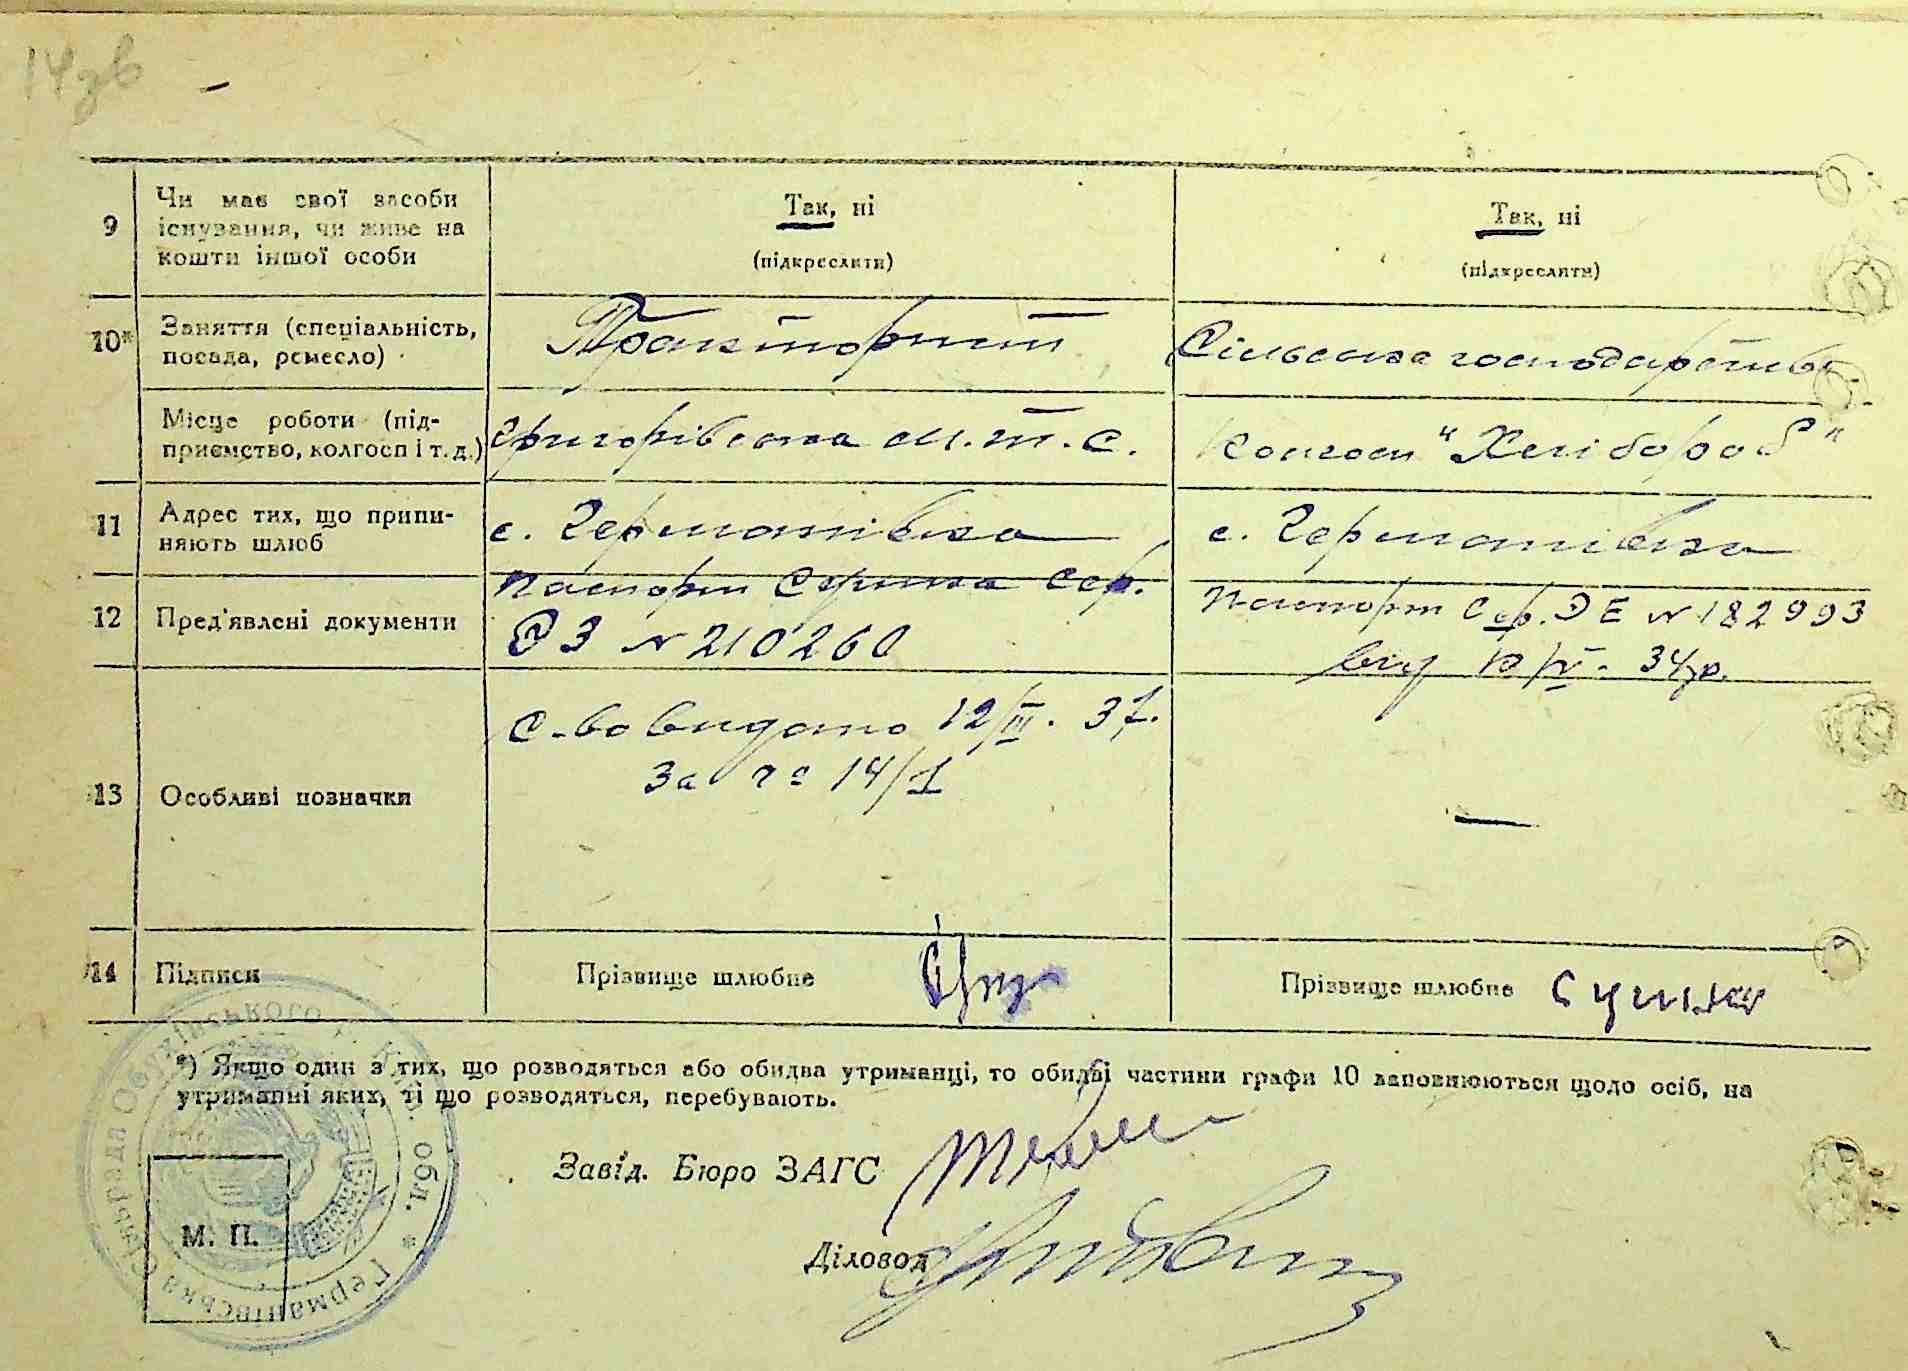 14зв
9
Чи має свої засоби
існування, чи живе на
кошти іншої особи
Так, ні
(підкреслити)
Так, ні
(підкреслити)
10*
Заняття (спеціальність,
посада, ремесло)
Тракторист
Сільське господарство
Місце роботи (під-
приємство, колгосп і т. д.)
Григорівська М.Т.С.
Колгосп "Хлібороб"
11
Адрес тих, що припи-
няють шлюб
с. Германівка
с. Германівка
12
Пред'явлені документи
Паспорт Серпка Сер.
ЭЗ № 210260
Паспорт Сер. ЭЕ № 182993
вид /IV. 34 р.
13
Особливі позначки
С-во видано 12/III. 37.
За № 14/1
—
14
Підписи
Прізвище шлюбне
Прізвище шлюбне
*) Якщо один з тих, що розводяться або обидва утриманці, то обидві частини графи 10 заповнюються щодо осіб, на
утриманні яких, ті що розводяться, перебувають.
Завід. Бюро ЗАГС
Діловод
М. П.
Германівська Сільрада Обухівського р. Київ. обл. *